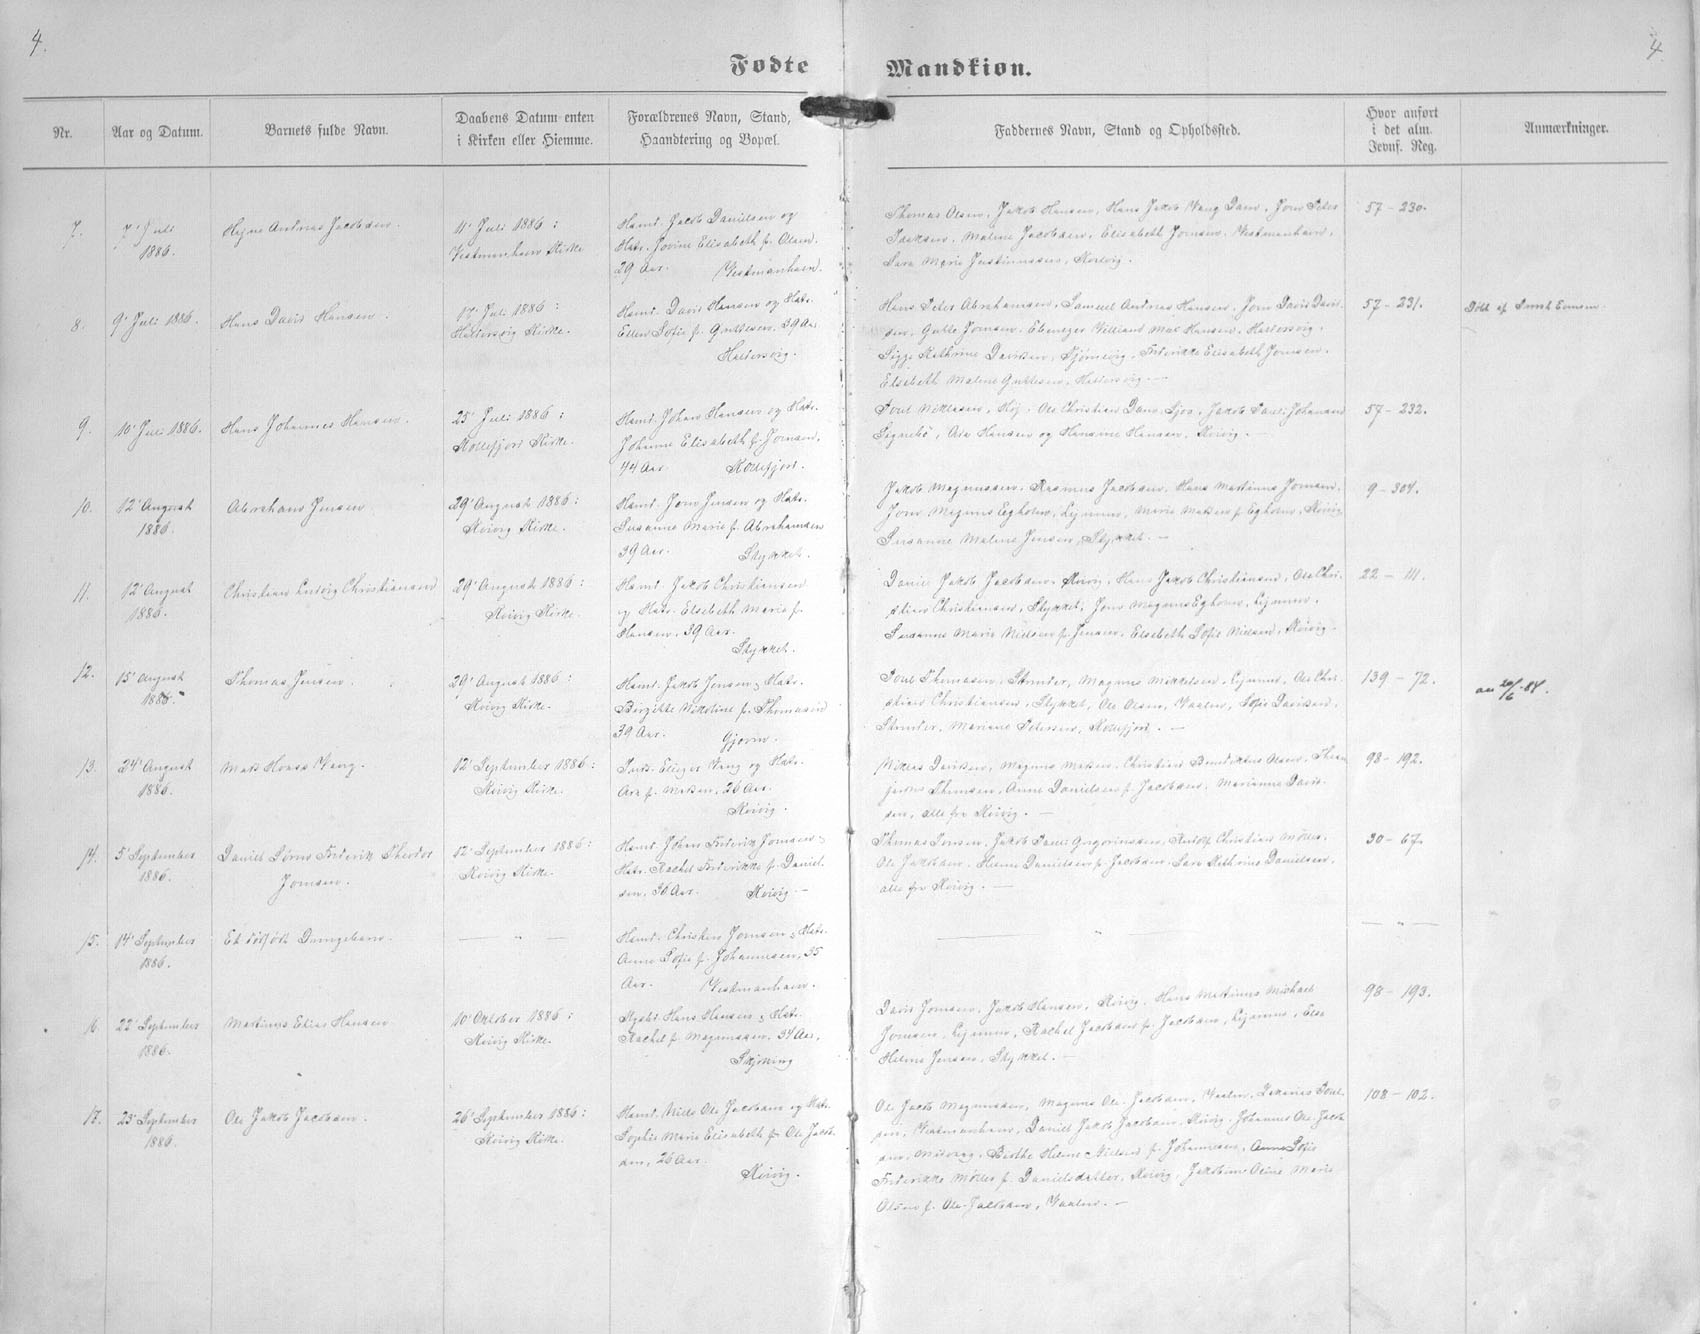 4.
4.
Fødte Mandkiøn.
Nr.
Aar og Datum.
Barnets fulde Navn.
Daabens Datum enten
i Kirken eller Hiemme.
Forældrenes Navn, Stand,
Haandtering og Bopæl.
Faddernes Navn, Stand og Opholdssted.
Hvor anført
i det alm.
Jevnf. Reg.
Anmærkninger.
7.
7' Juli
1886.
Andreas Jacobsen.
11' Juli 1886:
Vestmanhavn Kirke
Hsmd. Jacob Danielsen og
Hstr. Elisabeth f. Olsen.
29 Aar. Vestmanhavn.
Thomas Olsen, Jakob Hansen, Hans Jakob Vang Dam, Jørn Peter
Isaksen, Malene Jacobsen, Elisabeth Jornsen, Vestmanhavn,
Sara Marie Justinussen,
57-230.
8.
9' Juli 1886.
Hans David Hansen.
17' Juli 1886:
Haldersvig Kirke.
Hsmd. David Hansen og Hstr.
Ellen Sofie f. Guttesen, 39 Aar
Haldersvig.
Hans Peter Abrahamsen, Samuel Andreas Hansen, Jorn David David-
sen, Gutte Jornsen, Ebenezer Hansen, Haldersvig.
Sigga Kathrine Davidsen, Tjørnevig, Frederikke Elisabeth Jornsen,
Elsebeth Malene Guttesen, Haldersvig. —
57-231.
9.
10' Juli 1886.
Hans Johannes Hansen.
25' Juli 1886:
Kollefjord Kirke.
Hsmd. Johan Hansen og Hstr.
Johanne Elisabeth f. Jornsen,
44 Aar. Kollefjord.
Poul Niklasen, Høj, Ole Christian Dam, Jakob Pauli Johansen
Signebø, Hansen og Hansine Hansen, Kvivig. —
57-232.
10.
12' August
1886.
Abraham Jensen
29' August 1886:
Kvivig Kirke.
Hsmd. Jorn Jensen og Hstr.
Susanne Marie f. Abrahamsen
39 Aar. Stykket.
Jakob Magnussen, Rasmus Jacobsen, Hans Martinus Jornsen,
Jorn Magnus Egholm, Lejnum, Marie Madsen f. Egholm, Kvivig
Susanne Malene Jensen, Stykket. —
9-304.
11.
12' August
1886.
Christian Ludvig Christiansen
29' August 1886:
Kvivig Kirke.
Hsmd. Jakob Christiansen
og Hstr. Elsebeth Marie f.
Hansen, 39 Aar.
Stykket.
Daniel Jakob Jacobsen, Kvivig, Hans Jakob Christiansen, Ole Chri-
stian Christiansen, Stykket, Jorn Magnus Egholm, Lejnum,
Susanne Marie Nielsen f. Jensen, Elsebeth Sofie Nielsen, Kvivig.
22-111.
12.
15' August
1886.
Thomas Jensen.
29' August 1886:
Kvivig Kirke.
Hsmd. Jakob Jensen & Hstr.
Birgitte Nikoline f. Thomasen
39 Aar. Gjovn.
Poul Thomasen, Strender, Magnus Mikkelsen, Lejnum, Ole Chri-
stian Christiansen, Stykket, Ole Olsen, Vaalen, Sofie Davidsen,
Strender, Mariane Petersen, Kollefjord. —
139-72.
13.
24' August
1886.
Mads Vang.
12' September 1886:
Kvivig Kirke.
Elieser Vang og Hstr.
f. Madsen, 26 Aar.
Kvivig.
Niklas Davidsen, Magnus Madsen, Christian Benediktus Olsen,
Thomsen, Anne Danielsen f. Jacobsen, Marianne David-
sen, alle fra Kvivig. —
98-192.
14.
5' September
1886.
Daniel Frederik Theodor
Jornsen.
12' September 1886:
Kvivig Kirke.
Hsmd. Johan Frederik Jornsen &
Hstr. Rachel Frederikke f. Daniel-
sen, 30 Aar. Kvivig. —
Thomas Jensen, Jakob Pauli Gregoriussen, Christian Møller,
Ole Jakobsen, Helene Danielsen f. Jacobsen, Sara Kathrine Danielsen,
alle fra Kvivig. —
30-67.
15.
14' September
1886.
Et dødfødt Drengebarn.
— " —
Hsmd. Christen Jornsen & Hstr.
Anne Sofie f. Johannesen, 35
Aar. Vestmanhavn.
— " —
— " —
16.
22' September
1886.
Martinus Elias Hansen
10' Oktober 1886:
Kvivig Kirke.
Hans Hansen & Hstr.
Rachel f. Magnussen, 34 Aar,
David Jornsen, Jakob Hansen, Kvivig, Hans Martinus Michael
Jornsen, Lejnum, Rachel Jacobsen f. Jacobsen, Lejnum, Else
Helene Jensen, Stykket. —
98-193.
17.
23' September
1886.
Ole Jakob Jacobsen.
26' September 1886:
Kvivig Kirke.
Hsmd. Niels Ole Jacobsen og Hstr.
Sophie Marie Elisabeth f. Ole-Jacob-
sen, 26 Aar.
Kvivig.
Ole Jacob Magnussen, Magnus Ole-Jacobsen, Vaalen, Poul-
sen, Vestmanhavn, Daniel Jakob Jacobsen, Kvivig, Johannes Ole-Jacob-
sen, Midvaag, Birthe Helene Nielsen f. Johannesen, Anna Sofie
Frederikke Møller f. Danielsdatter, Kvivig, Jakobine Oline Marie
Olsen f. Ole-Jacobsen, Vaalen. —
108-102.